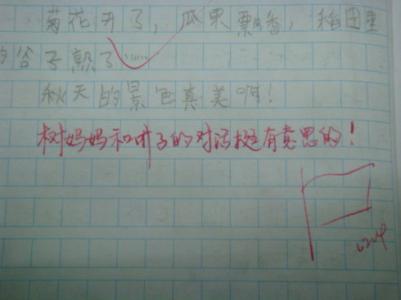 菊花开了，瓜果飘香，稻田里
的谷子熟了……
秋天的景色真美啊！
树妈妈和叶子的对话挺有意思的！